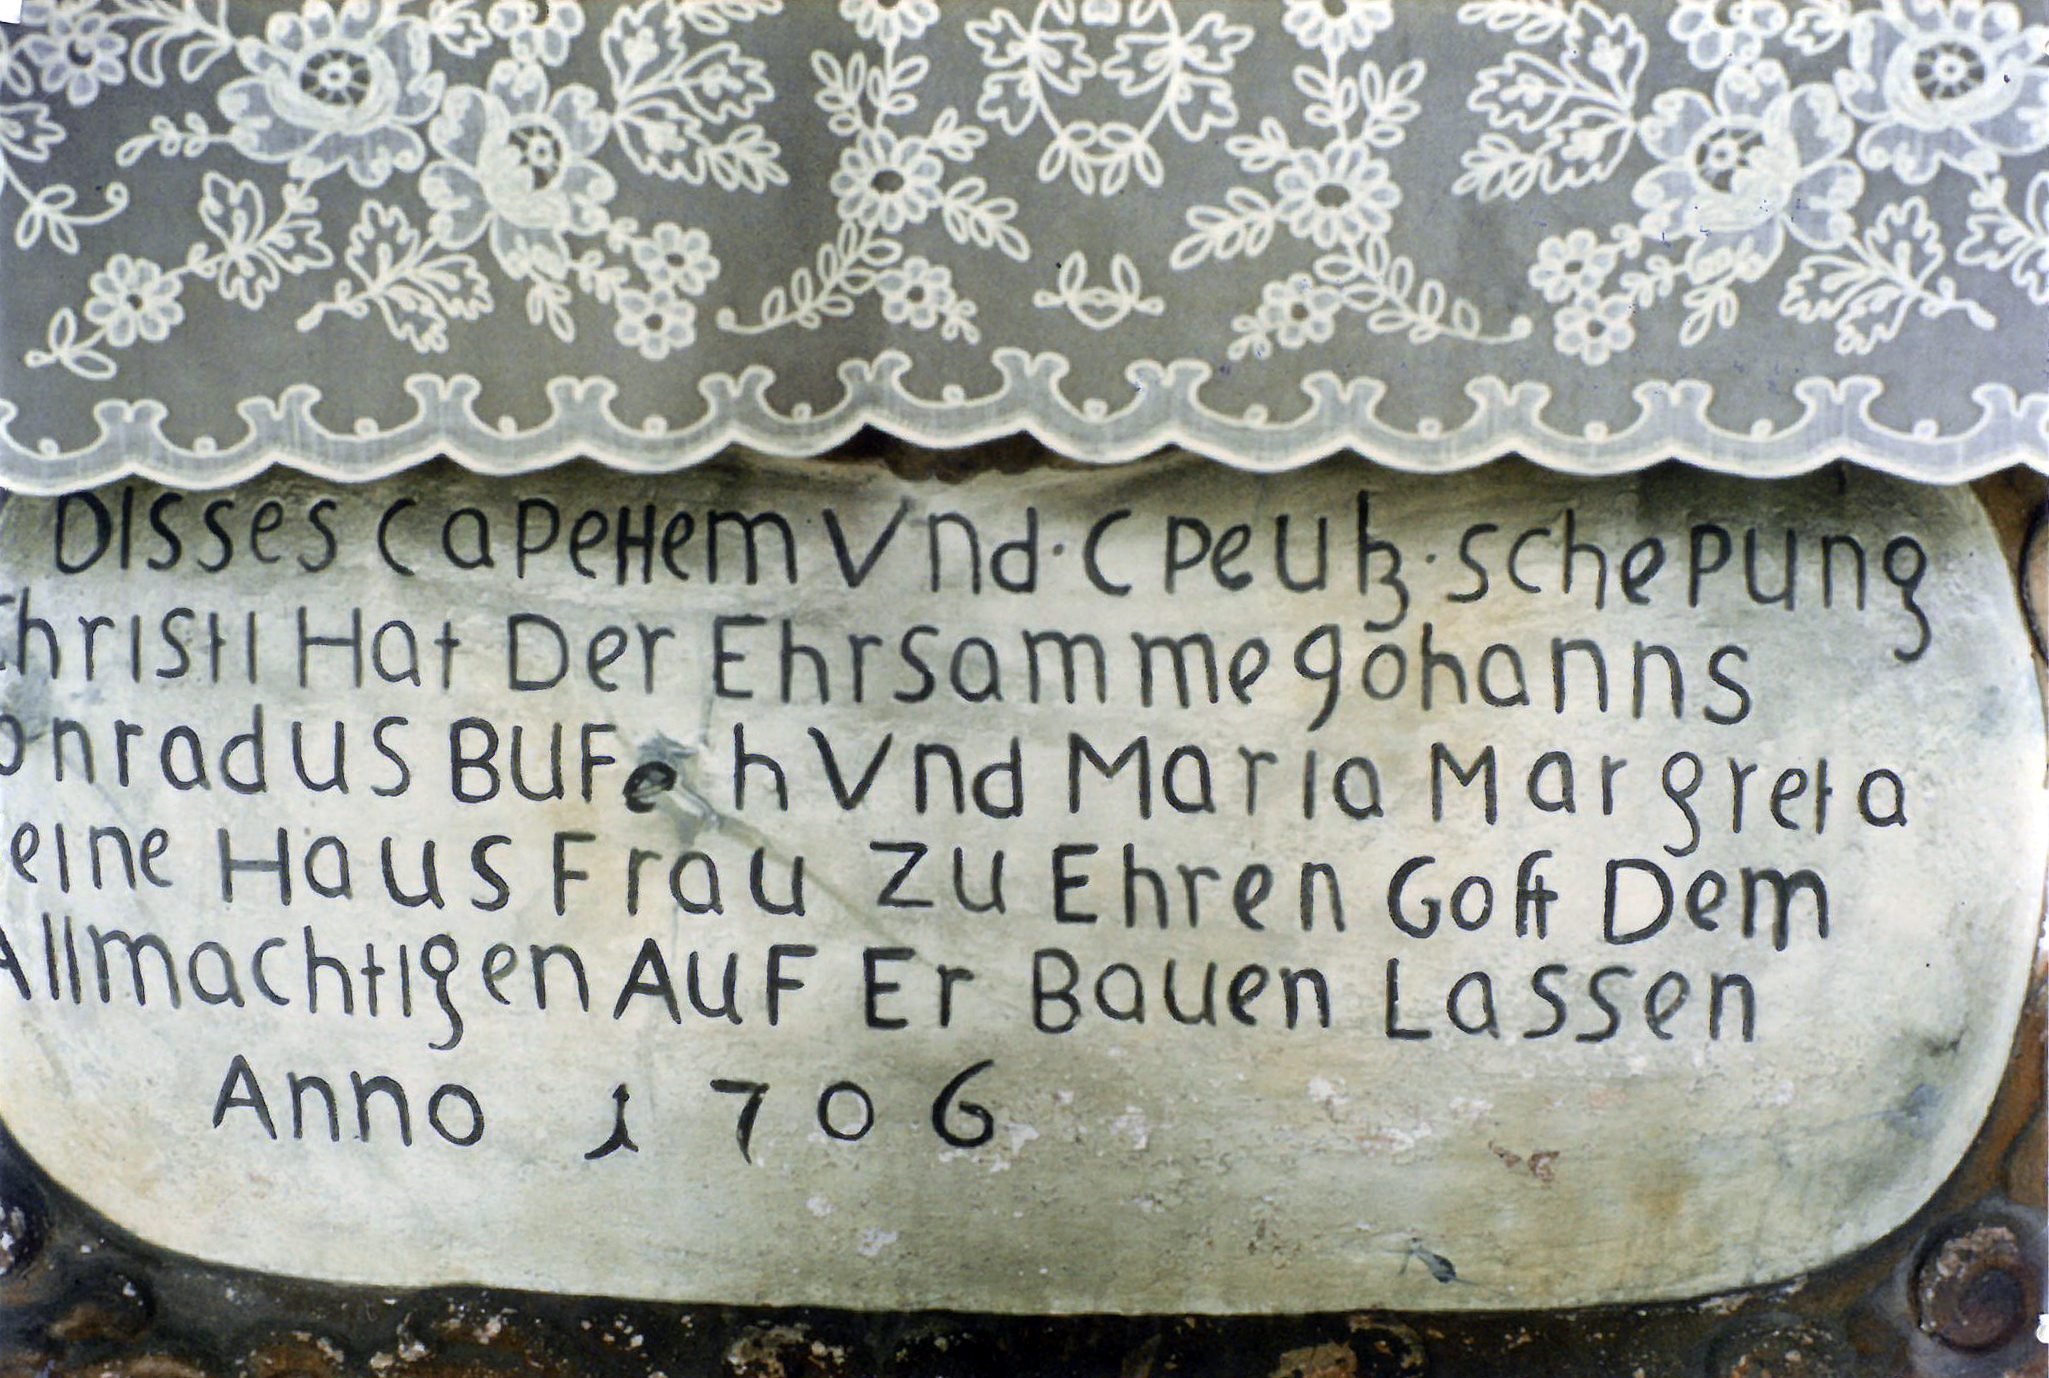 DISSES CaPeHem Vnd · CPeutz · SchePung
Christi Hat Der EhrSamme Johanns
onradus BUFe h Vnd Maria Margreta
eine Haus Frau Zu Ehren Gott Dem
Allmachtigen AuF Er Bauen Lassen
Anno 1706